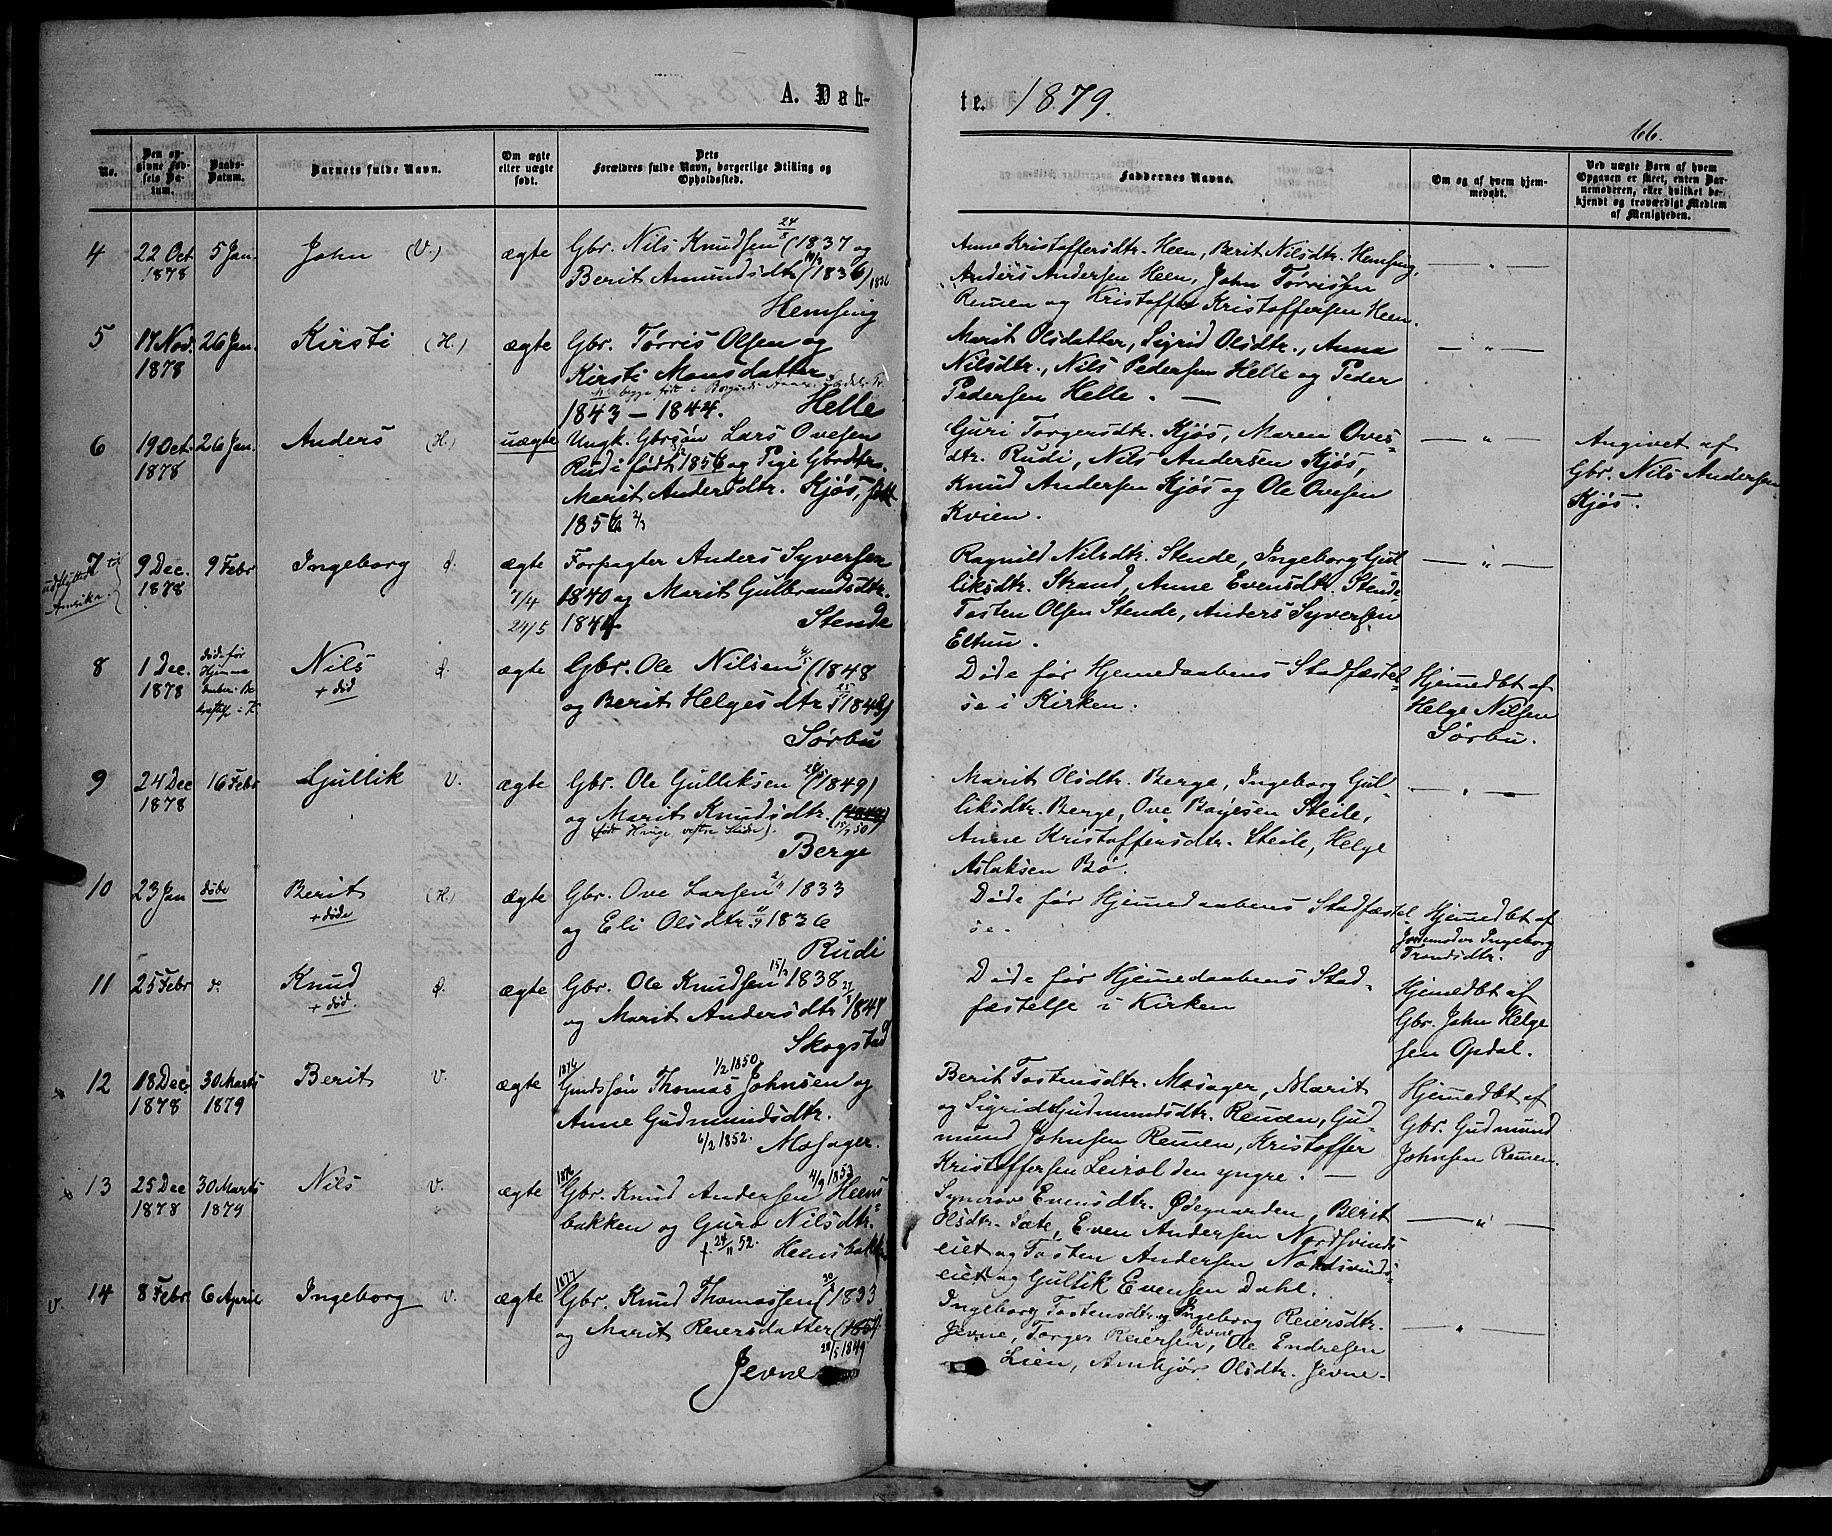 A. Døb-
te. 1879.
66.
No.
Den opgivne Fødsels Datum.
Daabs-Datum.
Barnets fulde Navn.
Om ægte eller uægte født.
Dets Forældres fulde Navn, borgerlige Stilling og Opholdssted.
Faddernes Navne.
Om og af hvem hjemmedøbt.
Ved uægte Børn af hvem Opgaven er skeet, enten Barnemoderen, eller hvilket bekjendt og troværdigt Medlem af Menigheden.
4
22 Oct. 1878
5 Jan.
John (V.)
ægte
Gbr. Nils Knudsen 24/8 (1837 og
Berit Amundsdtr (1836) 1836
Hemsing
Anne Kristoffersdtr. Heen, Berit Nilsdtr. Hemsing,
Anders Andersen Heen, John Tørrissen
Remen og Kristoffer Kristoffersen Heen.
— " —
5
17 Nov. 1878
26 Jan.
Kirsti (H.)
ægte
Gbr. Tørris Olsen og
Kirsti Monsdatter
1843 – 1844. Helle
Marit Olsdatter, Sigrid Olsdtr., Anna
Nilsdtr., Nils Pedersen Helle og Peder
Pedersen Helle. —
— " —
6
19 Oct. 1878
26 Jan.
Anders (H.)
uægte
Ungk. Gbrsøn Lars Ovesen
Rudi født 1856 og Pige Gbrdtr.
Marit Andersdtr. Kjøs, født
1856 2/3
Guri Torgersdtr. Kjøs, Maren Oves-
dtr. Rudi, Nils Andersen Kjøs,
Knud Andersen Kjøs og Ole Ovesen
Kvien.
— " —
Angivet af
Gbr. Nils Andersen
Kjøs.
7
udflyttet til
Amerika.
9 Dec. 1878
9 Febr
Ingeborg Ø.
ægte
7/4
24/5
Forpagter Anders Syversen
1840 og Marit Gulbrandsdtr.
1844 Stende
Ragnild Nilsdtr. Stende, Ingeborg Gul-
liksdtr. Strand, Anne Evensdtr. Stende
Tosten Olsen Stende, Anders Syversen
Eltun.
— " —
8
1 Dec. 1878
døde før
Hjemme
daabens Be
kræftelse i K
Nils
+ død
Ø.
ægte
Gbr. Ole Nilsen (1848
og Berit Helgesdtr. 1848)
Sørbu
Døde før Hjemedaabens Stadfæstel-
se i Kirken.
Hjemedbt af
Helge Nilsen
Sørbu.
9
24 Dec 1878
16 Febr
Gullik V.
ægte
Gbr. Ole Gulliksen (1849)
og Marit Knudsdtr. (1849)
(født Hauge vestre Slidre). 15/7 50
Berge
Marit Olsdtr. Berge, Ingeborg Gul-
liksdtr. Berge, Ove Boyesen Steile,
Anne Kristoffersdtr. Steile, Helge
Aslaksen Bø.
— " —
10
23 Jan
døde
Berit
+ døde
(H.)
ægte
Gbr. Ove Larsen 2/11 1833
og Eli Olsdtr. 1836
Rudi
Døde før Hjemedaabens Stadfæstel
se.
Hjemedbt af
Jordemoder Ingeborg
Trondsdtr.
11
25 Febr
d.
Knud
+ død.
Ø.
ægte
Gbr. Ole Knudsen 15/3 1838
og Marit Andersdtr. 1841
Skogstad
Døde før Hjemedaabens Stad-
fæstelse i Kirken
Hjemedbt af
Gbr. John Helge
sen Opdal.
12
18 Dec. 1878
30 Marts 1879
Berit V.
ægte
1876
1/2 1850
Thomas Johnsen og
Anne Gudmundsdtr.
6/2 1852. Mosager.
Berit Tostensdtr. Mosager, Marit
og Sigrid Gudmundsdtr. Remen, Gud-
mund Johnsen Remen, Kristoffer
Kristoffersen Leirol den yngre. —
Hjemedbt af
Gbr. Gudmund
Johnsen Remen.
13
25 Dec 1878
30 Marts 1879
Nils V.
ægte
1876
4/9 1853
Gbr. Knud Andersen Heens-
bakken og Guro Nilsdtr.
f. 24/11 52. Heensbakken
Synnøve Evensdtr. Ødegaarden, Berit
Olsdtr. Sæte, Even Andersen Nordsvinds
eiet og Tosten Andersen Nordsvinds-
eiet og Gullik Evensen Dahl.
— " —
v.
14
8 Febr.
6 April
Ingeborg V.
ægte
1877
Gbr. Knud Thomassen (1833
og Marit Reiersdatter (1851
28/5 1849
Jevne
Ingeborg Tostensdtr. og Ingeborg Reiersdtr.
Jevne, Torger Reiersen Jevne, Ole Endresen
Lien, Ambjør Olsdtr. Jevne.
— " —